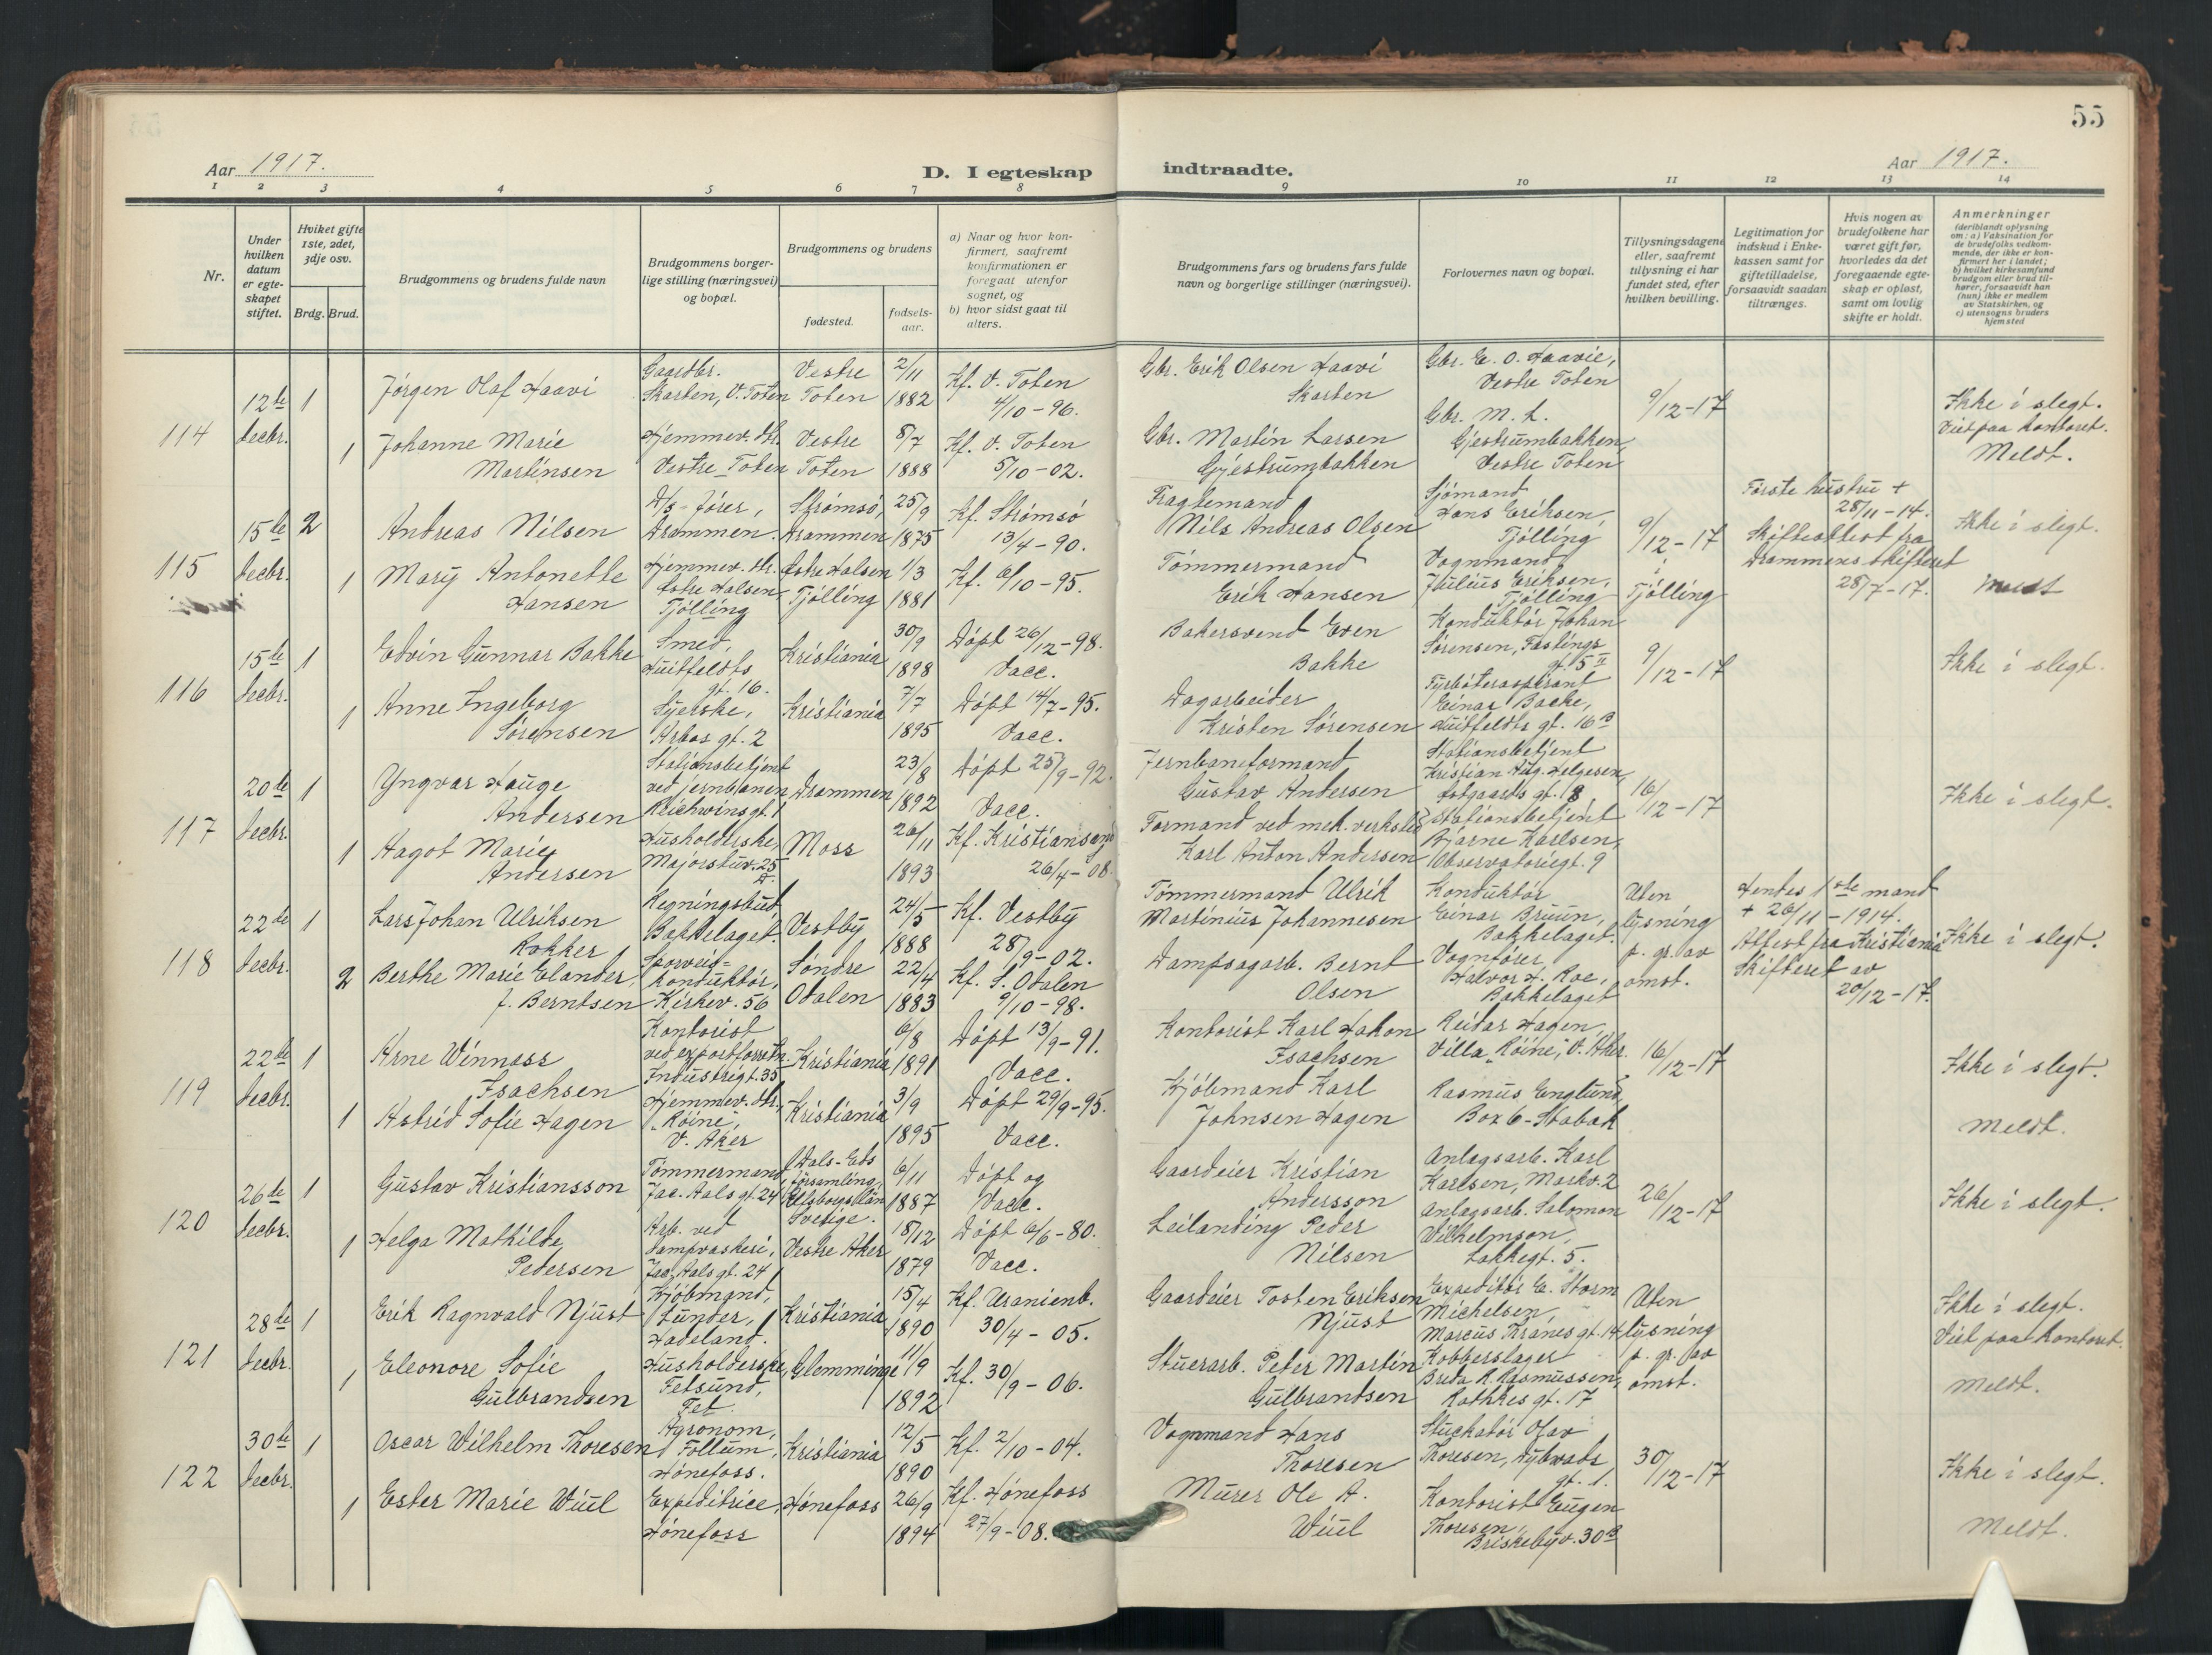 55
Aar 1917.
D. I egteskap indtraadte.
Aar 1917.
1 2 3 4 5 6 7 8 9 10 11 12 13 14
Nr.
Under hvilken datum er egte-skapet stiftet.
Hviket gifte 1ste, 2det, 3dje osv.
Brdg. Brud.
Brudgommens og brudens fulde navn
Brudgommens borger-lige stilling (næringsvei) og bopæl.
Brudgommens og brudens
fødested.
fødsels-aar.
a) Naar og hvor kon-firmert, saafremt konfirmationen er foregaat utenfor sognet, og
b) hvor sidst gaat til alters.
Brudgommens fars og brudens fars fulde navn og borgerlige stillinger (næringsvei).
Forlovernes navn og bopæl.
Tillysningsdagene eller, saafremt tillysning ei har fundet sted, efter hvilken bevilling.
Legitimation for indskud i Enke-kassen samt for giftetilladelse, forsaavidt saadan tiltrænges.
Hvis nogen av brudefolkene har været gift før, hvorledes da det foregaaende egte-skap er opløst, samt om lovlig skifte er holdt.
Anmerkninger (deriblandt oplysning om: a) Vaksination for de brudefolks vedkom-mende, der ikke er kon-firmert her i landet; b) hvilket kirkesamfund brudgom eller brud til-hører, forsaavidt han (hun) ikke er medlem av Statskirken, og c) utensogns bruders hjemsted
114 12te Decbr. 1 Jørgen Olaf Haavi
Gaardbr. Skarten, V. Toten
Vestre Toten
2/11 1882
Kf. V. Toten 4/10-96.
Gbr. Erik Olsen Haavi Skarten
Gbr. E. O. Haavie, Vestre Toten
9/12-17
Ikke i slegt. Viet paa kontoret. Meldt.
1 Johanne Marie Martinsen
Hjemmev. dtr. Vestre Toten
Vestre Toten
8/7 1888
Kf. V. Toten 5/10-02.
Gbr. Martin Larsen Gjestrumbakken
Gbr. M. L. Gjestrumbakken, Vestre Toten
115 15de Decbr. 2 Andreas Nilsen
D/s-fører, Drammen.
Strømsø, Drammen
25/9 1875
Kf. Strømsø 13/4-90.
Fragtemand Nils Andreas Olsen
Sjømand Hans Eriksen, Tjølling
9/12-17 i Tjølling
Første hustru + 28/11-14. Skifteattest fra Drammens skifteret 28/7-17.
Ikke i slegt. Meldt
1 Mary Antonette Hansen
Hjemmev. dtr. Østre Halsen Tjølling
Østre Halsen Tjølling
1/3 1881
Kf. 6/10-95.
Tømmermand Erik Hansen
Vognmand Julius Eriksen, Tjølling
116 15de Decbr. 1 Edvin Gunnar Bakke
Smed, Huitfeldts gt. 16.
Kristiania
30/9 1898
Døpt 26/12-98. Vacc.
Bakersvend Even Bakke
Konduktør Johan Sørensen, Fastings gt. 5 II
9/12-17
Ikke i slegt.
1 Anne Ingeborg Sørensen
Syerske, Arbos gt. 2
Kristiania
7/7 1895
Døpt 14/7-95. Vacc.
Dagarbeider Kristen Sørensen
Fyrbøteraspirant Einar Bakke, Huitfeldts gt. 16 B
117 20de Decbr. 1 Yngvar Hauge Andersen
Stationsbetjent ved jernbanen Reichwinsgt. 1
Drammen
23/8 1892
Døpt 25/9-92. Vacc.
Jernbaneformand Gustav Andersen
Stationsbetjent Kristian Aug. Helgesen, gt. 18
16/12-17
Ikke i slegt.
1 Hagot Marie Andersen
Husholderske, Majorstuv. 25
Moss
26/11 1893
Kf. Kristiansand 26/4-08.
Formand ved mek. verksted Karl Anton Andersen
Stationsbetjent Bjarne Karlsen, Observatoriegt. 9
118 22de Decbr. 1 Lars Johan Ulriksen Kokker
Regningsbud, Bækkelaget.
Vestby
24/5 1888
Kf. Vestby 28/9-02.
Tømmermand Ulrik Martinius Johannesen
Konduktør Einar Bruun, Bækkelaget.
Uten lysning p. gr. av omst.
Hendes 1ste mand + 26/11-1914. Attest fra Kristiania Skifteret av 20/12-17.
Ikke i slegt.
2 Berthe Marie Elander, f. Berntsen
Sporveis-konduktør, Kirkev. 56
Søndre Odalen
22/4 1883
Kf. S. Odalen 9/10-98.
Dampsagarb. Bernt Olsen
Vognfører Halvor H. Roe, Bækkelaget
119 22de Decbr. 1 Arne Winnass Isachsen
Kontorist ved exportforretn. Industrigt. 35
Kristiania
6/8 1891
Døpt 13/9-91. Vacc.
Kontorist Karl Hakon Isachsen
Reidar Hagen, Villa "Røine", V. Aker.
16/12-17
Ikke i slegt. Meldt.
1 Astrid Sofie Hagen
Hjemmev. dtr, "Røine", V. Aker
Kristiania
3/9 1895
Døpt 29/9-95. Vacc.
Kjøbmand Karl Johnsen Hagen
Rasmus Englund, Box 6 - Stabæk
120 26de Decbr. 1 Gustav Kristiansson
Tømmermand, Jac. Aals gt. 24
Dals-Eds församling, Elfsborgs län Sverige.
6/11 1887
Døpt og Vacc.
Gaardeier Kristian Andersson
Anlægsarb. Karl Karlsen, Markv. 2
26/12-17
Ikke i slegt.
1 Helga Mathilde Pedersen
Arb. ved dampvaskeri, Jac. Aals gt. 24
Vestre Aker
18/12 1879
Døpt 6/6-80. Vacc.
Leilænding Peder Nilsen
Anlægsarb. Salomon Vilhelmson, Lakkegt. 5.
121 28de Decbr. 1 Erik Ragnvald Njust
Kjøbmand, Lunder, Hadeland.
Kristiania
15/4 1890
Kf. Uranienb. 30/4-05.
Gaardeier Tosten Eriksen Njust
Expeditør E. Storm Michelsen, Marcus Thranes gt. 14
Uten lysning p. gr. av omst.
Ikke i slegt. Viet paa kontoret. Meldt.
1 Eleonore Sofie Gulbrandsen
Husholderske, Fetsund, Fet.
Glemminge
11/9 1892
Kf. 30/9-06.
Stuerarb. Peter Martin Gulbrandsen
Kobberslager Breda R. Rasmussen, Rathkes gt. 17
122 30de Decbr. 1 Oscar Wilhelm Thoresen
Agronom, Follum, Hønefoss.
Kristiania
12/5 1890
Kf. 2/10-04.
Vognmand Hans Thoresen
Stuckatør Olav Thoresen, Dybvads gt. 1.
30/12-17
Ikke i slegt. Meldt.
1 Ester Marie Wiul
Expeditrice, Hønefoss
Hønefoss
26/9 1894
Kf. Hønefoss 27/9-08.
Murer Ole A. Wiul
Kontorist Eugen Thoresen, Briskebyv. 30 B